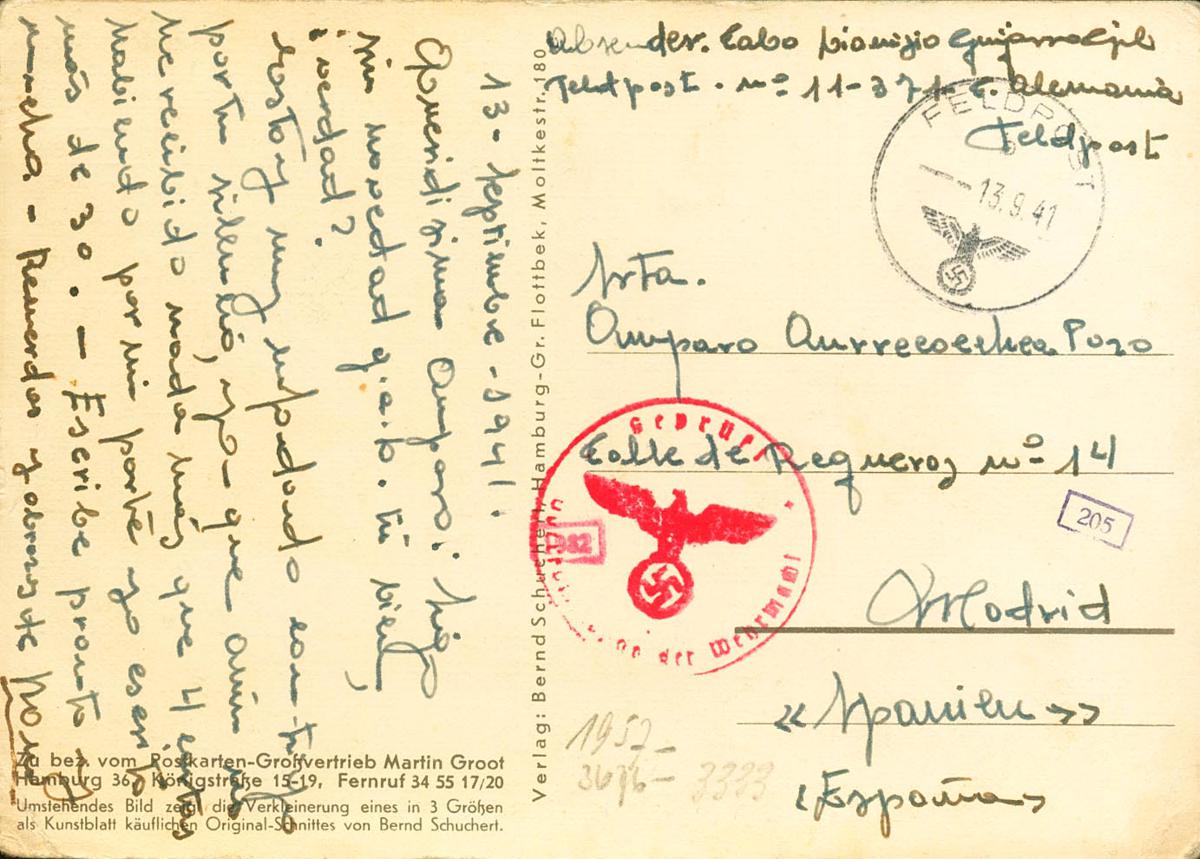 Absender. Cabo Dionisio Guijarro Gil
Feldpost. nº 11-371-E. Alemania
Feldpost
FELDPOST
13.9.41
Srta.
Amparo Aurrecoechea Pozo
Calle de Regueros nº 14
Madrid
«Spanien»
«España»
Geprüft
der Wehrmacht
205
1957-
3676- 3333
13-septiembre-1941.
Queridisima Amparo: Sigo
sin novedad g.a.D. tú bien,
¿verdad?
Estoy muy enfadado con tu
por tu silencio, yo- que aún no
he recibido nada más que 4 cartas
habiendo por mi parte yo escrito
más de 30. - Escribe pronto y
mucho - Recuerdos y abrazos te
Verlag: Bernd Schuchert, Hamburg-Gr. Flottbek, Moltkestr. 180
Zu bez. vom Postkarten-Großvertrieb Martin Groot
Hamburg 36, Königstraße 15-19, Fernruf 34 55 17/20
Umstehendes Bild zeigt die Verkleinerung eines in 3 Größen
als Kunstblatt käuflichen Original-Schnittes von Bernd Schuchert.